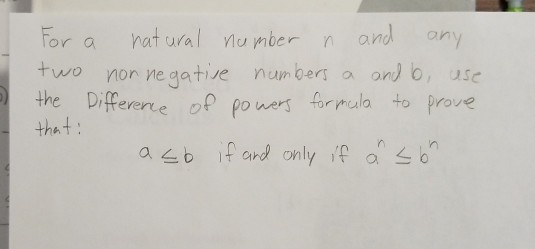 For a natural number n and any
two nonnegative numbers a and b, use
the Difference of powers formula to prove
that:
a ≤ b if and only if aⁿ ≤ bⁿ